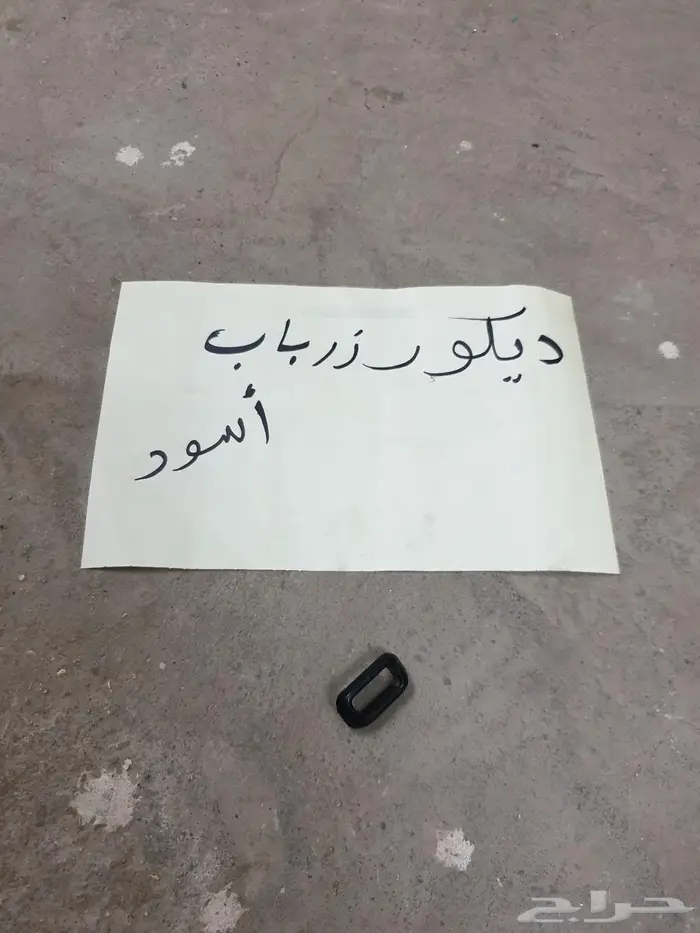 ديكور زر باب
أسود
حراج